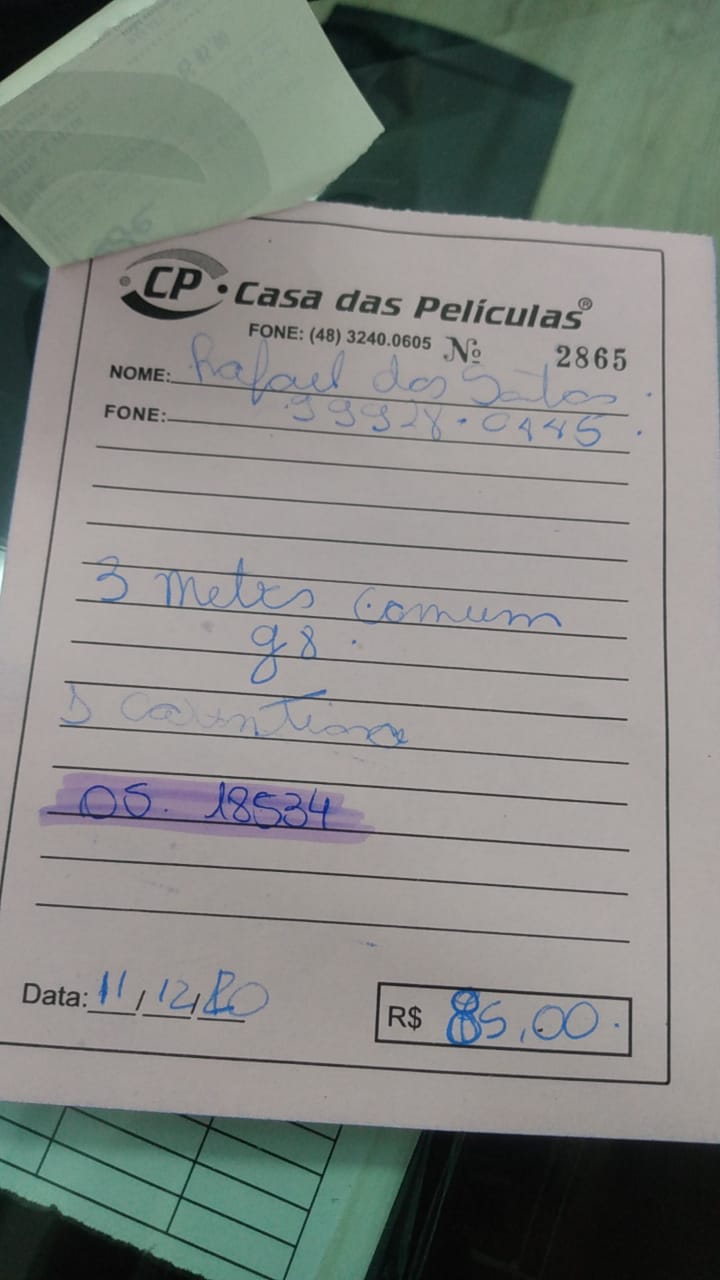 CP Casa das Películas®
FONE: (48) 3240.0605 Nº 2865
NOME: Rafael dos Santos
FONE: 99928-0445
3 metros comum
g8
OS. 18534
Data: 11/12/20 R$ 85,00